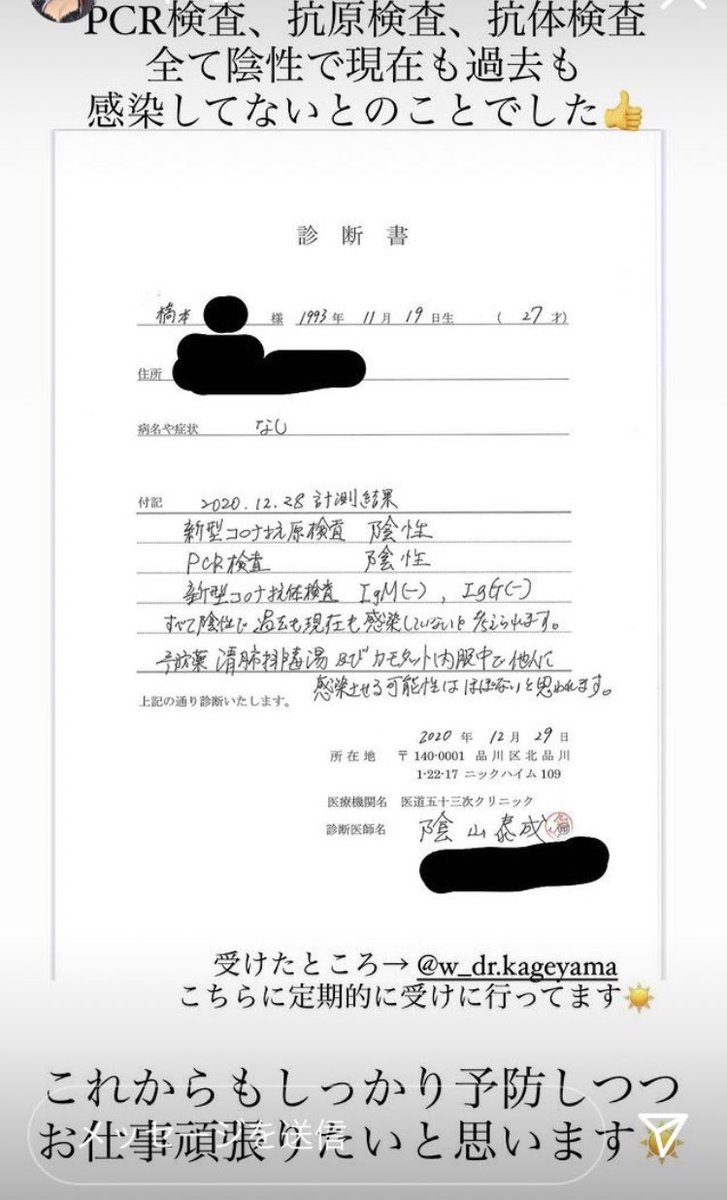 PCR検査、抗原検査、抗体検査
全て陰性で現在も過去も
感染してないとのことでした👍
診 断 書
橋本 様 1993 年 11 月 19 日生 ( 27 才)
住所
病名や症状 なし
付記 2020.12.28 計測結果
新型コロナ抗原検査 陰性
PCR検査 陰性
新型コロナ抗体検査 IgM(-) , IgG(-)
すべて陰性で過去も現在も感染していないと考えられます。
予防薬 清肺排毒湯 及び カモスタット内服中で他人に
感染させる可能性はほぼないと思われます。
上記の通り診断いたします。
2020 年 12 月 29 日
所在地 〒140-0001 品川区北品川
1-22-17 ニックハイム109
医療機関名 医道五十三次クリニック
診断医師名 陰山泰成
受けたところ→@w_dr.kageyama
こちらに定期的に受けに行ってます☀️
これからもしっかり予防しつつ
お仕事頑張りたいと思います☀️
メッセージを送信